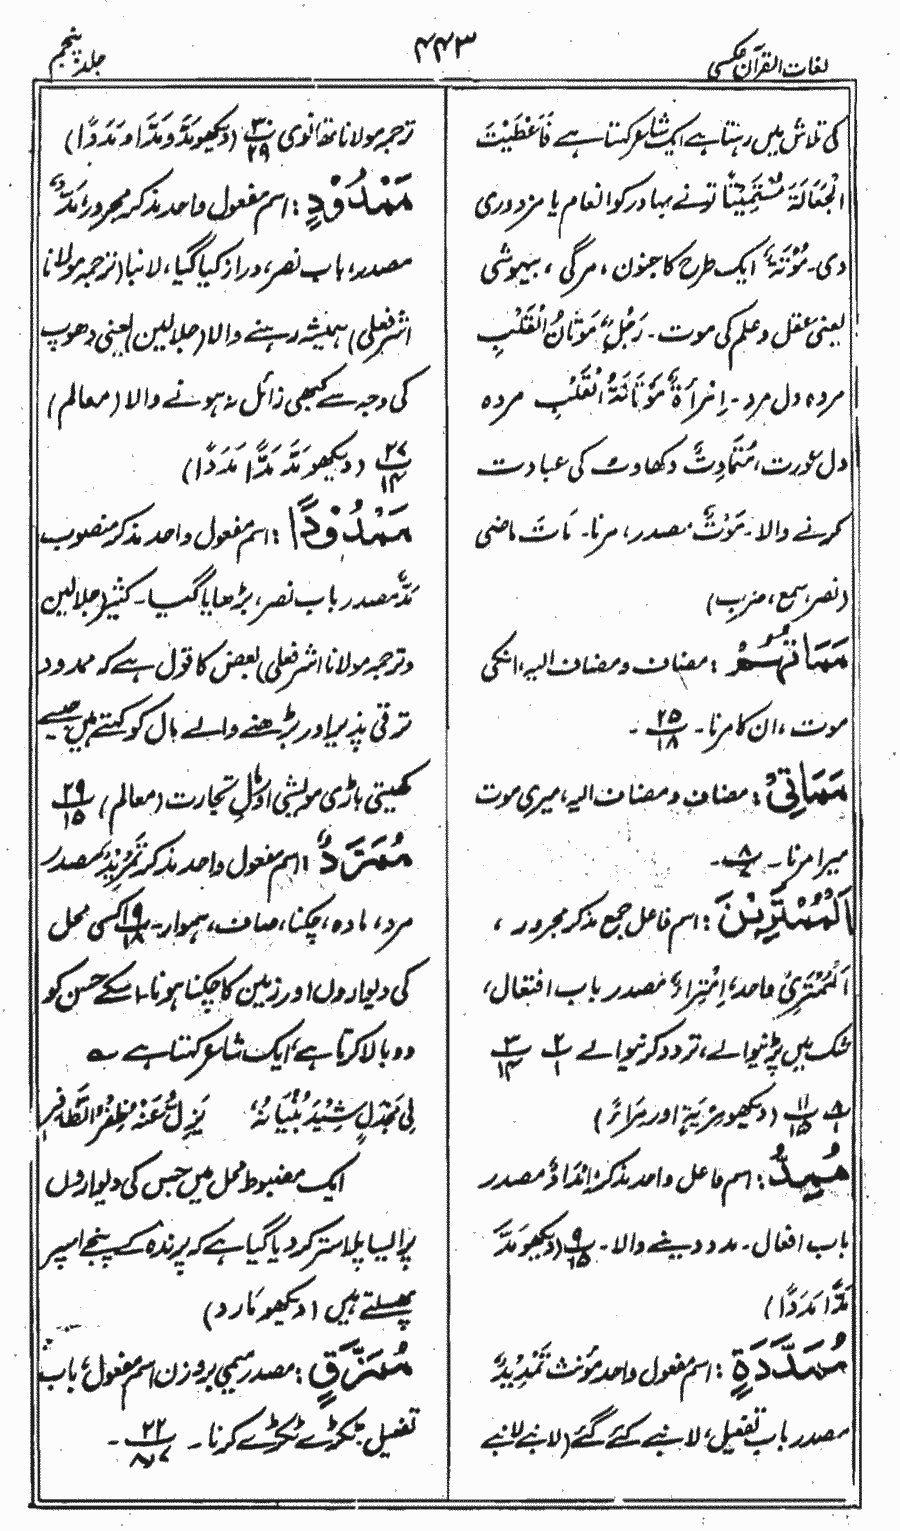 لغات القرآن عکسی
۴۴۳
جلد پنجم
کی تلاش میں رہتا ہے ایک شاعر کہتا ہے فَاَعْطَیْتَ
الْجَعَالَةَ مُسْتَمِیْتًا تونے بہادر کو انعام یا مزدوری
دی۔ مُوْتَةٌ ایک طرح کا جنون، مرگی، بیہوشی
یعنی عقل و علم کی موت۔ رَجُلٌ مَوْتَانُ الْقَلْبِ
مردہ دل مرد۔ اِمْرَأَةٌ مَوْتَانَةُ الْقَلْبِ مردہ
دل عورت، مُتَمَاوِتٌ دکھاوٹ کی عبادت
کرنے والا۔ مَوْتٌ مصدر، مرنا۔ مَاتَ ماضی
(نصر، سمع، ضرب)
مَمَاتُهُمْ: مضاف و مضاف الیہ، انکی
موت، ان کا مرنا۔ ۲۵/۱۸ ۔
مَمَاتِیْ: مضاف و مضاف الیہ، میری موت
میرا مرنا۔ ۸/۷ ۔
اَلْمُمْتَرِیْنَ: اسم فاعل جمع مذکر مجرور،
اَلْمُمْتَرِیْ واحد، اِمْتِرَاءٌ مصدر باب افتعال،
شک میں پڑنیوالے، تردد کرنیوالے ۲/۱ ۳/۱۴
۸/۱ ۱۱/۱۵ (دیکھو مِرْیَةٍ اور مِرَاءً)
مُمِدٌّ: اسم فاعل واحد مذکر، اِمْدَادٌ مصدر
باب افعال۔ مدد دینے والا۔ ۹/۱۵ (دیکھو مَدَّ
مَدًّا مَدَدًا)
مُمَدَّدَةٍ: اسم مفعول واحد مؤنث تَمْدِیْدٌ
مصدر باب تفعیل، لانبے کئے گئے (لانبے لانبے
ترجمہ مولانا تھانوی ۳۰/۲۹ (دیکھو مَدَّ و مَدًّا و مَدَدًا)
مَمْدُوْدٍ: اسم مفعول واحد مذکر مجرور، مَدٌّ
مصدر، باب نصر، دراز کیا گیا، لانبا (ترجمہ مولانا
اشرفعلی) ہمیشہ رہنے والا (جلالین) یعنی دھوپ
کی وجہ سے کبھی زائل نہ ہونے والا (معالم)
۲۷/۱۴ (دیکھو مَدَّ مَدًّا مَدَدًا)
مَمْدُوْدًا: اسم مفعول واحد مذکر منصوب
مَدٌّ مصدر باب نصر، بڑھایا گیا۔ کثیر (جلالین
و ترجمہ مولانا اشرفعلی) بعض کا قول ہے کہ ممدود
ترقی پذیر اور بڑھنے والے مال کو کہتے ہیں جیسے
کھیتی باڑی مویشی اور مالِ تجارت (معالم) ۲۹/۱۵
مُمَرَّدٌ: اسم مفعول واحد مذکر تَمْرِیْدٌ مصدر
مرد، مادہ، چکنا، صاف، ہموار۔ ۱۹/۱۸ کسی محل
کی دیواروں اور زمین کا چکنا ہونا۔ اسکے حسن کو
دوبالا کرتا ہے، ایک شاعر کہتا ہے ؎
فِی مَجْدَلٍ شِیْدَ بُنْیَانُهٗ یَزِلُّ عَنْهُ ظُفُرُ الطَّافِرِ
ایک مضبوط محل میں جس کی دیواروں
پر ایسا پلاستر کر دیا گیا ہے کہ پرندہ کے پنجے اسپر
پھسلتے ہیں (دیکھو مَارِد)
مُمَزَّقٍ: مصدر میمی بروزن اسم مفعول، باب
تفعیل۔ ٹکڑے ٹکڑے کرنا۔ ۲۲/۷،۸ ۔